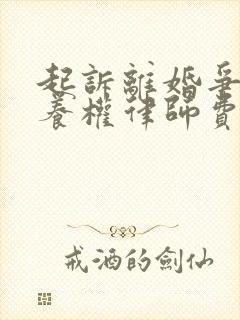 起訴離婚爭
養權律師費
戒酒的劍仙